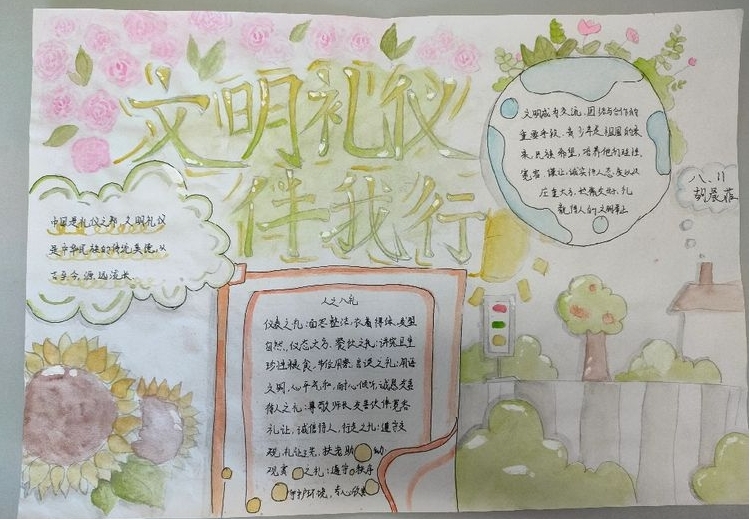 文明礼仪
伴我行
中国是礼仪之邦,文明礼仪
是中华民族的传统美德,从
古至今,源远流长
文明成为交流、团结与合作的
重要手段,青少年是祖国的未
来,民族希望,培养他们理性,
宽容、谦让、诚实待人态度以及
庄重大方、热爱友好、礼
貌待人的文明举止
八、11
人之八礼
仪表之礼:面容整洁,衣着得体,发型
自然,仪态大方。餐饮之礼:讲究卫生
珍惜粮食,节位用餐。言谈之礼:用语
文明,心平气和,耐心倾听,诚恳友善
待人之礼:尊敬师长,友善伙伴,宽容
礼让,诚信待人,行走之礼:遵守交
规,礼让三先,扶老助幼
观赏之礼:遵守秩序
守护环境,专心欣赏